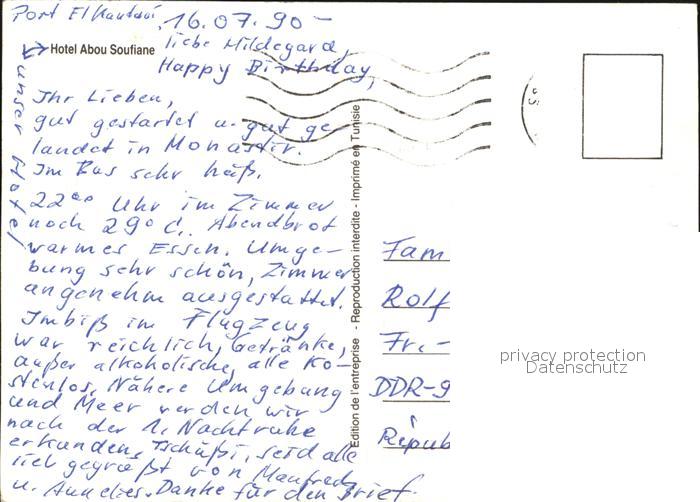 Port El Kantaoui, 16.07.90 -
Hotel Abou Soufiane
unser Hotel
liebe Hildegard,
Happy Birthday,
Ihr Lieben,
gut gestartet u. gut ge-
landet in Monastir.
Im Bus sehr heiß.
22°° Uhr im Zimmer
noch 29° C. Abendbrot
warmes Essen. Umge-
bung sehr schön, Zimmer
angenehm ausgestattet.
Imbiß im Flugzeug
war reichlich, Getränke,
außer alkoholische, alle Ko-
stenlos. Nähere Umgebung
und Meer werden wir
nach der 1. Nachtruhe
erkunden. Tschüßi, seid alle
lieb gegrüßt von Manfred
u. Annelies. Danke für den Brief.
Edition de l'entreprise - Reproduction interdite - Imprimé en Tunisie
Fam
Rolf
Fr.-
DDR-9
Répub
privacy protection
Datenschutz